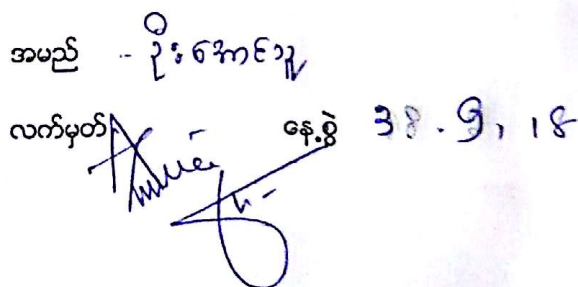 အမည် - ဦးအောင်သူ
လက်မှတ် နေ့စွဲ 30.9.18